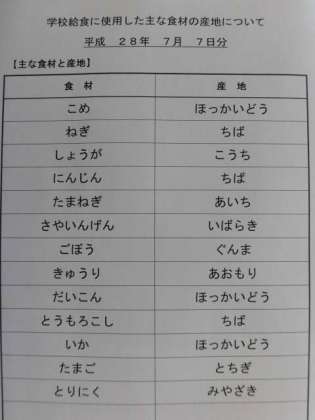 学校給食に使用した主な食材の産地について
平成 28年 7月 7日分
【主な食材と産地】
食 材 産 地
こめ ほっかいどう
ねぎ ちば
しょうが こうち
にんじん ちば
たまねぎ あいち
さやいんげん いばらき
ごぼう ぐんま
きゅうり あおもり
だいこん ほっかいどう
とうもろこし ちば
いか ほっかいどう
たまご とちぎ
とりにく みやざき